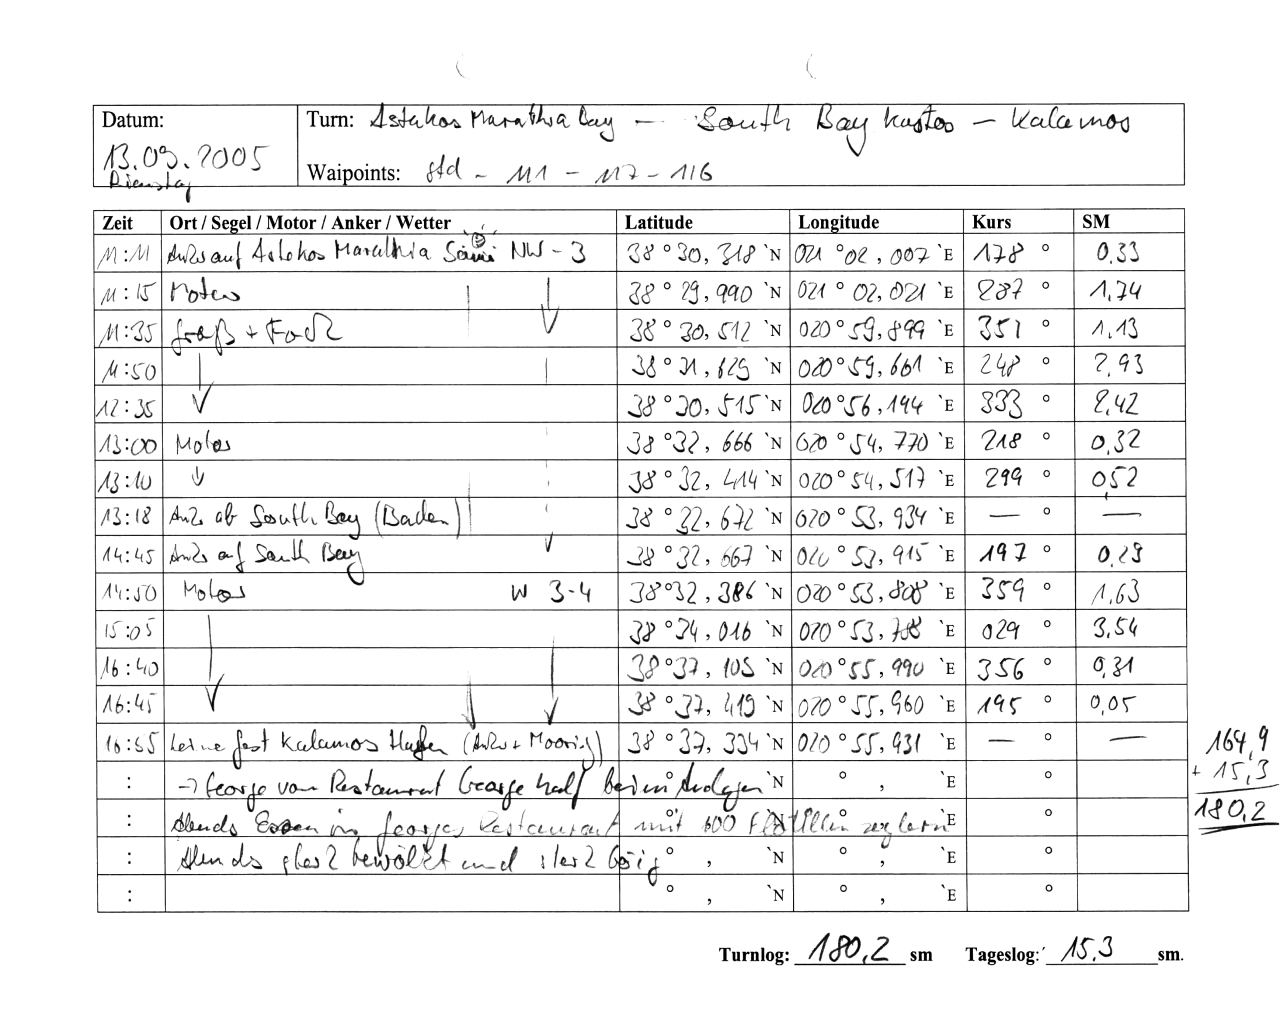 Datum: Turn: Astakos Marathia Bay — South Bay Kastos — Kalamos
13.09.2005
Dienstag Waipoints: std - M1 - M7 - 116
Zeit Ort / Segel / Motor / Anker / Wetter Latitude Longitude Kurs SM
11:11 Anker auf Astakos Marathia NW - 3 38° 30, 318 'N 021° 02, 007 'E 178 ° 0,33
11:15 Motor 38° 29, 990 'N 021° 02, 021 'E 287 ° 1,74
11:35 Groß + Fock 38° 30, 512 'N 020° 59, 899 'E 351 ° 1,13
11:50 38° 31, 629 'N 020° 59, 661 'E 248 ° 2,93
12:35 38° 30, 515 'N 020° 56, 194 'E 333 ° 2,42
13:00 Motor 38° 32, 666 'N 020° 54, 770 'E 218 ° 0,32
13:10 38° 32, 414 'N 020° 54, 517 'E 299 ° 0,52
13:18 Anker ab South Bay (Baden) 38° 32, 672 'N 020° 53, 934 'E — ° —
14:45 Anker auf South Bay 38° 32, 667 'N 020° 53, 915 'E 197 ° 0,29
14:50 Motor W 3-4 38° 32, 386 'N 020° 53, 808 'E 359 ° 1,63
15:05 38° 34, 016 'N 020° 53, 788 'E 029 ° 3,54
16:40 38° 37, 105 'N 020° 55, 990 'E 356 ° 0,31
16:45 38° 37, 419 'N 020° 55, 960 'E 195 ° 0,05
16:55 Leine fest Kalamos Hafen (Anker + Mooring) 38° 37, 334 'N 020° 55, 931 'E — ° —
164,9
+ 15,3
180,2
: → George vom Restaurant George half beim Anlegen ° 'N ° , 'E °
: Abends Essen in Georges Restaurant mit 600 Flottillen seglern ° 'N ° , 'E °
: Abends bewölkt und böig ° , 'N ° , 'E °
: ° , 'N ° , 'E °
Turnlog: 180,2 sm Tageslog: 15,3 sm.